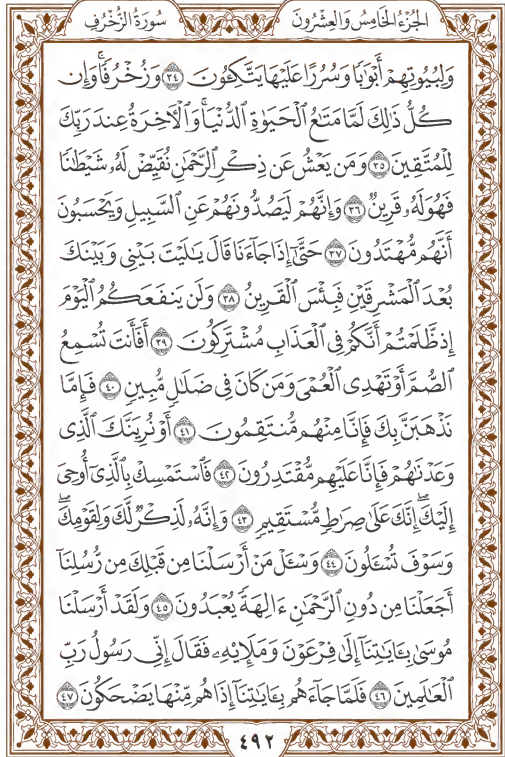 الجُزْءُ الخَامِسُ وَالعِشْرُونَ سُورَةُ الزُّخْرُفِ
وَلِبُيُوتِهِمْ أَبْوَٰبًا وَسُرُرًا عَلَيْهَا يَتَّكِـُٔونَ ٣٤ وَزُخْرُفًا ۚ وَإِن
كُلُّ ذَٰلِكَ لَمَّا مَتَـٰعُ ٱلْحَيَوٰةِ ٱلدُّنْيَا ۚ وَٱلْـَٔاخِرَةُ عِندَ رَبِّكَ
لِلْمُتَّقِينَ ٣٥ وَمَن يَعْشُ عَن ذِكْرِ ٱلرَّحْمَـٰنِ نُقَيِّضْ لَهُۥ شَيْطَـٰنًا
فَهُوَ لَهُۥ قَرِينٌ ٣٦ وَإِنَّهُمْ لَيَصُدُّونَهُمْ عَنِ ٱلسَّبِيلِ وَيَحْسَبُونَ
أَنَّهُم مُّهْتَدُونَ ٣٧ حَتَّىٰٓ إِذَا جَآءَنَا قَالَ يَـٰلَيْتَ بَيْنِى وَبَيْنَكَ
بُعْدَ ٱلْمَشْرِقَيْنِ فَبِئْسَ ٱلْقَرِينُ ٣٨ وَلَن يَنفَعَكُمُ ٱلْيَوْمَ
إِذ ظَّلَمْتُمْ أَنَّكُمْ فِى ٱلْعَذَابِ مُشْتَرِكُونَ ٣٩ أَفَأَنتَ تُسْمِعُ
ٱلصُّمَّ أَوْ تَهْدِى ٱلْعُمْىَ وَمَن كَانَ فِى ضَلَـٰلٍ مُّبِينٍ ٤٠ فَإِمَّا
نَذْهَبَنَّ بِكَ فَإِنَّا مِنْهُم مُّنتَقِمُونَ ٤١ أَوْ نُرِيَنَّكَ ٱلَّذِى
وَعَدْنَـٰهُمْ فَإِنَّا عَلَيْهِم مُّقْتَدِرُونَ ٤٢ فَٱسْتَمْسِكْ بِٱلَّذِىٓ أُوحِىَ
إِلَيْكَ ۖ إِنَّكَ عَلَىٰ صِرَٰطٍ مُّسْتَقِيمٍ ٤٣ وَإِنَّهُۥ لَذِكْرٌ لَّكَ وَلِقَوْمِكَ ۖ
وَسَوْفَ تُسْـَٔلُونَ ٤٤ وَسْـَٔلْ مَنْ أَرْسَلْنَا مِن قَبْلِكَ مِن رُّسُلِنَآ
أَجَعَلْنَا مِن دُونِ ٱلرَّحْمَـٰنِ ءَالِهَةً يُعْبَدُونَ ٤٥ وَلَقَدْ أَرْسَلْنَا
مُوسَىٰ بِـَٔايَـٰتِنَآ إِلَىٰ فِرْعَوْنَ وَمَلَإِي۟هِۦ فَقَالَ إِنِّى رَسُولُ رَبِّ
ٱلْعَـٰلَمِينَ ٤٦ فَلَمَّا جَآءَهُم بِـَٔايَـٰتِنَآ إِذَا هُم مِّنْهَا يَضْحَكُونَ ٤٧
٤٩٢